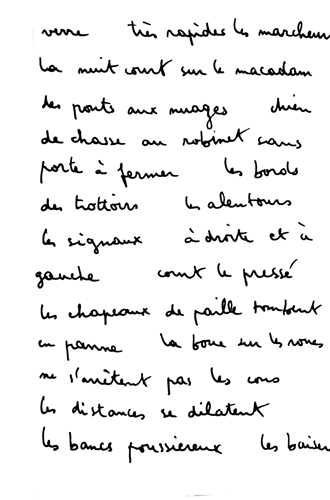 verre très rapides les marcheurs
la nuit court sur le macadam
des ponts aux nuages chien
de chasse au robinet sans
porte à fermer les bords
des trottoirs les alentours
les signaux à droite et à
gauche court le pressé
les chapeaux de paille tombent
en panne la boue sur les roues
ne s'arrêtent pas les cous
les distances se dilatent
les bancs poussiéreux les baiser